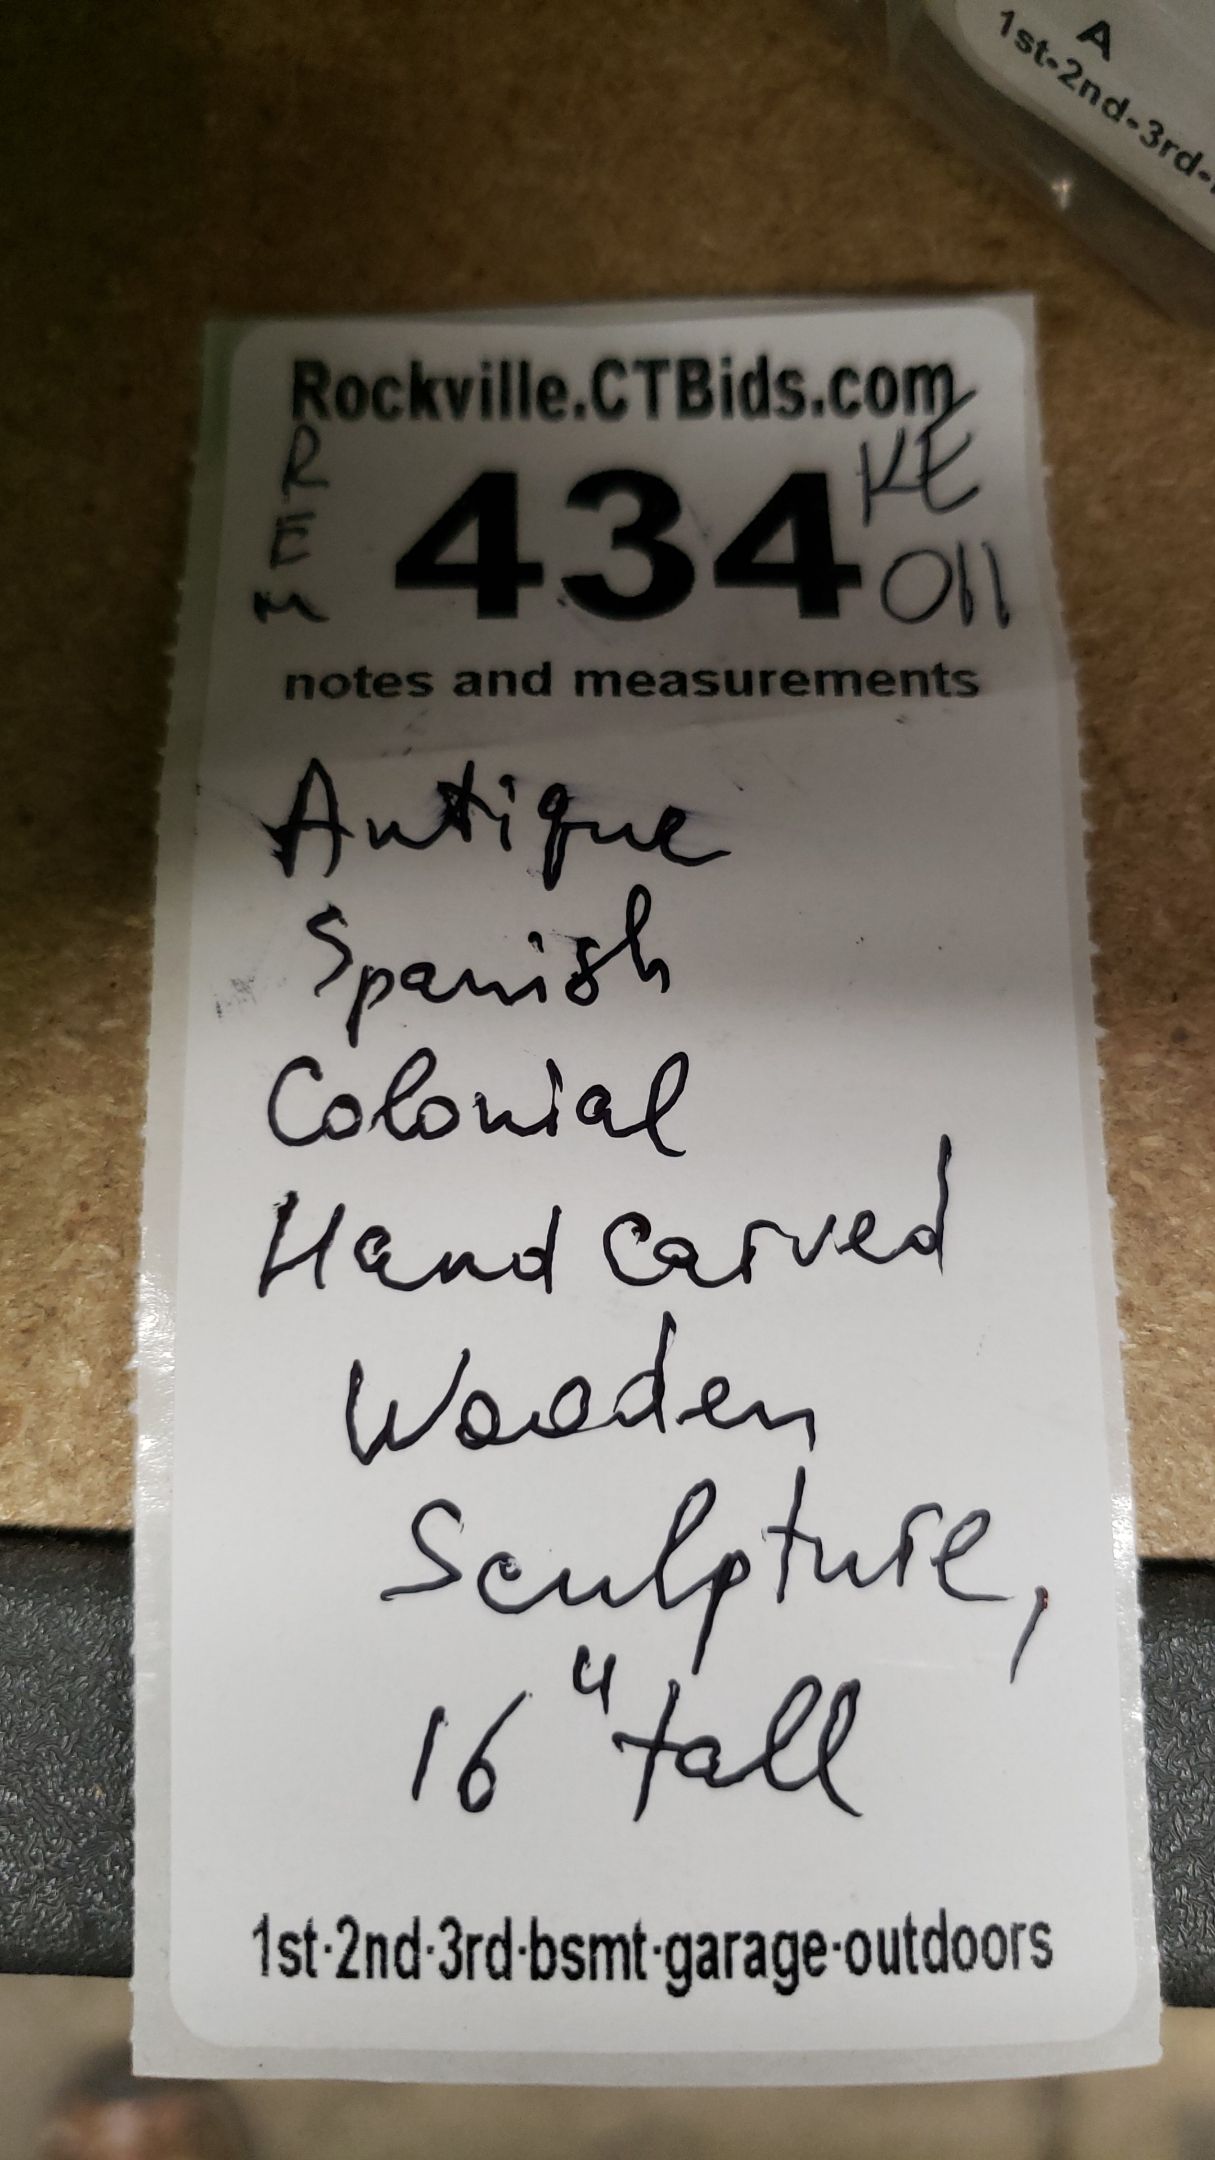 A
1st-2nd-3rd-
Rockville.CTBids.com
REM 434 KE
011
notes and measurements
Antique
Spanish
Colonial
Hand carved
Wooden
Sculpture,
16" tall
1st·2nd·3rd·bsmt·garage·outdoors